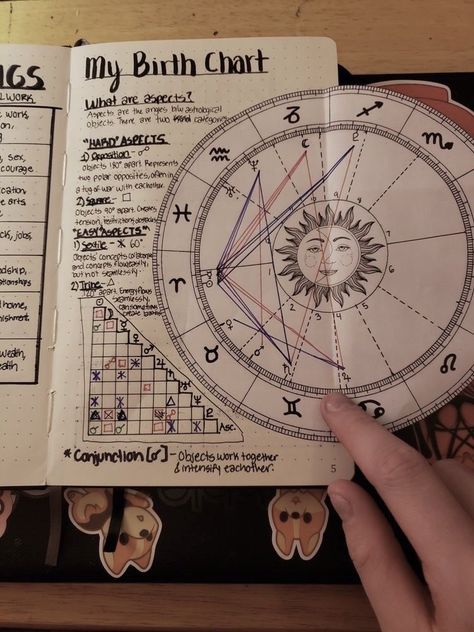 NGS
LWORK
work,
on,
y
, sex,
courage.
cation
e arts
ck, jobs,
dship,
elationships
home,
nishment.
wealth,
ealth
My Birth Chart
What are aspects?
Aspects are the angles b/w astrological
objects. There are two kind categories
"HARD" ASPECTS
1) Opposition - ☍
Objects 180° apart. Represents
two polar opposities, often in
a tug of war with each other.
2) Square - □
Objects 90° apart. Creates
tension, restrictions,
"EASY ASPECTS"
1) Sextile - ⚹ 60°
Objects concepts collaborate
and concepts flow easily,
but not seamlessly.
2) Trine - △
120° apart. Energy flows
seamlessly,
can sometimes
create
Asc.
* Conjunction [☌] - Objects work together
& intensify eachother.
5